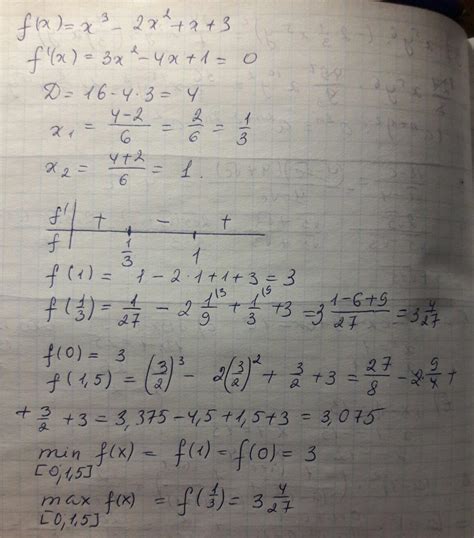 f(x) = x³ - 2x² + x + 3
f'(x) = 3x² - 4x + 1 = 0
D = 16 - 4·3 = 4
x₁ = (4-2)/6 = 2/6 = 1/3
x₂ = (4+2)/6 = 1.
f' | + - +
f | 1/3 1
f(1) = 1 - 2·1 + 1 + 3 = 3
f(1/3) = 1/27 - 2 1/9^(3 + 1/3^(9 + 3 = 3 (1-6+9)/27 = 3 4/27
f(0) = 3
f(1,5) = (3/2)³ - 2(3/2)² + 3/2 + 3 = 27/8 - 2·9/4 +
+ 3/2 + 3 = 3,375 - 4,5 + 1,5 + 3 = 3,075
min f(x) = f(1) = f(0) = 3
[0,1,5]
max f(x) = f(1/3) = 3 4/27
[0,1,5]